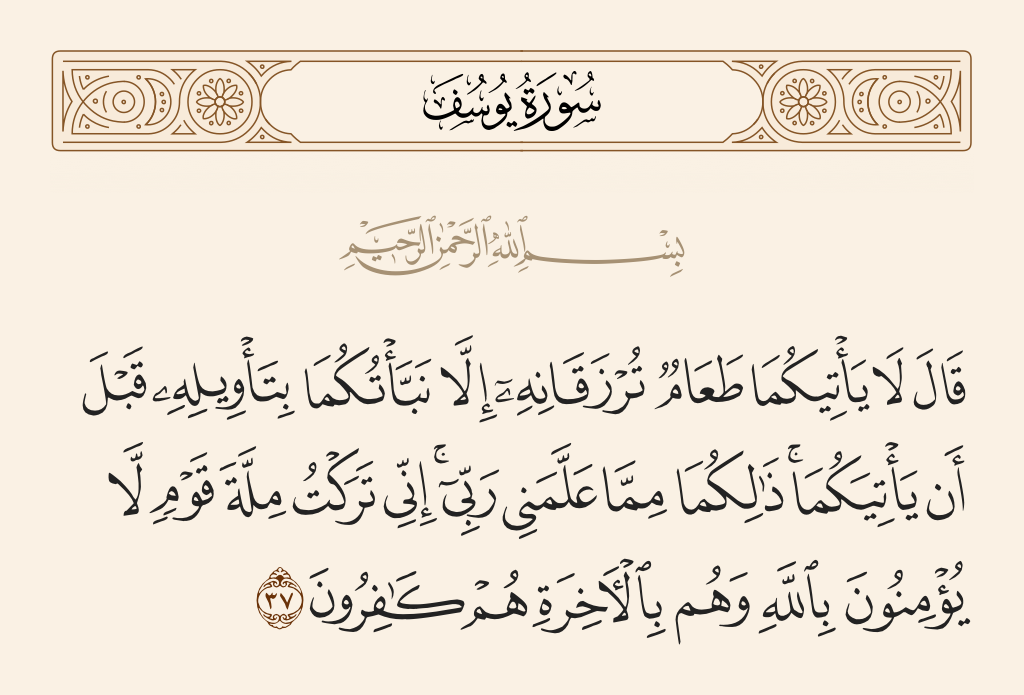 سُورَةُ يُوسُفَ
بِسْمِ ٱللَّهِ ٱلرَّحْمَٰنِ ٱلرَّحِيمِ
قَالَ لَا يَأْتِيكُمَا طَعَامٌ تُرْزَقَانِهِۦٓ إِلَّا نَبَّأْتُكُمَا بِتَأْوِيلِهِۦ قَبْلَ
أَن يَأْتِيَكُمَا ۚ ذَٰلِكُمَا مِمَّا عَلَّمَنِى رَبِّىٓ ۚ إِنِّى تَرَكْتُ مِلَّةَ قَوْمٍ لَّا
يُؤْمِنُونَ بِٱللَّهِ وَهُم بِٱلْـَٔاخِرَةِ هُمْ كَـٰفِرُونَ ٣٧